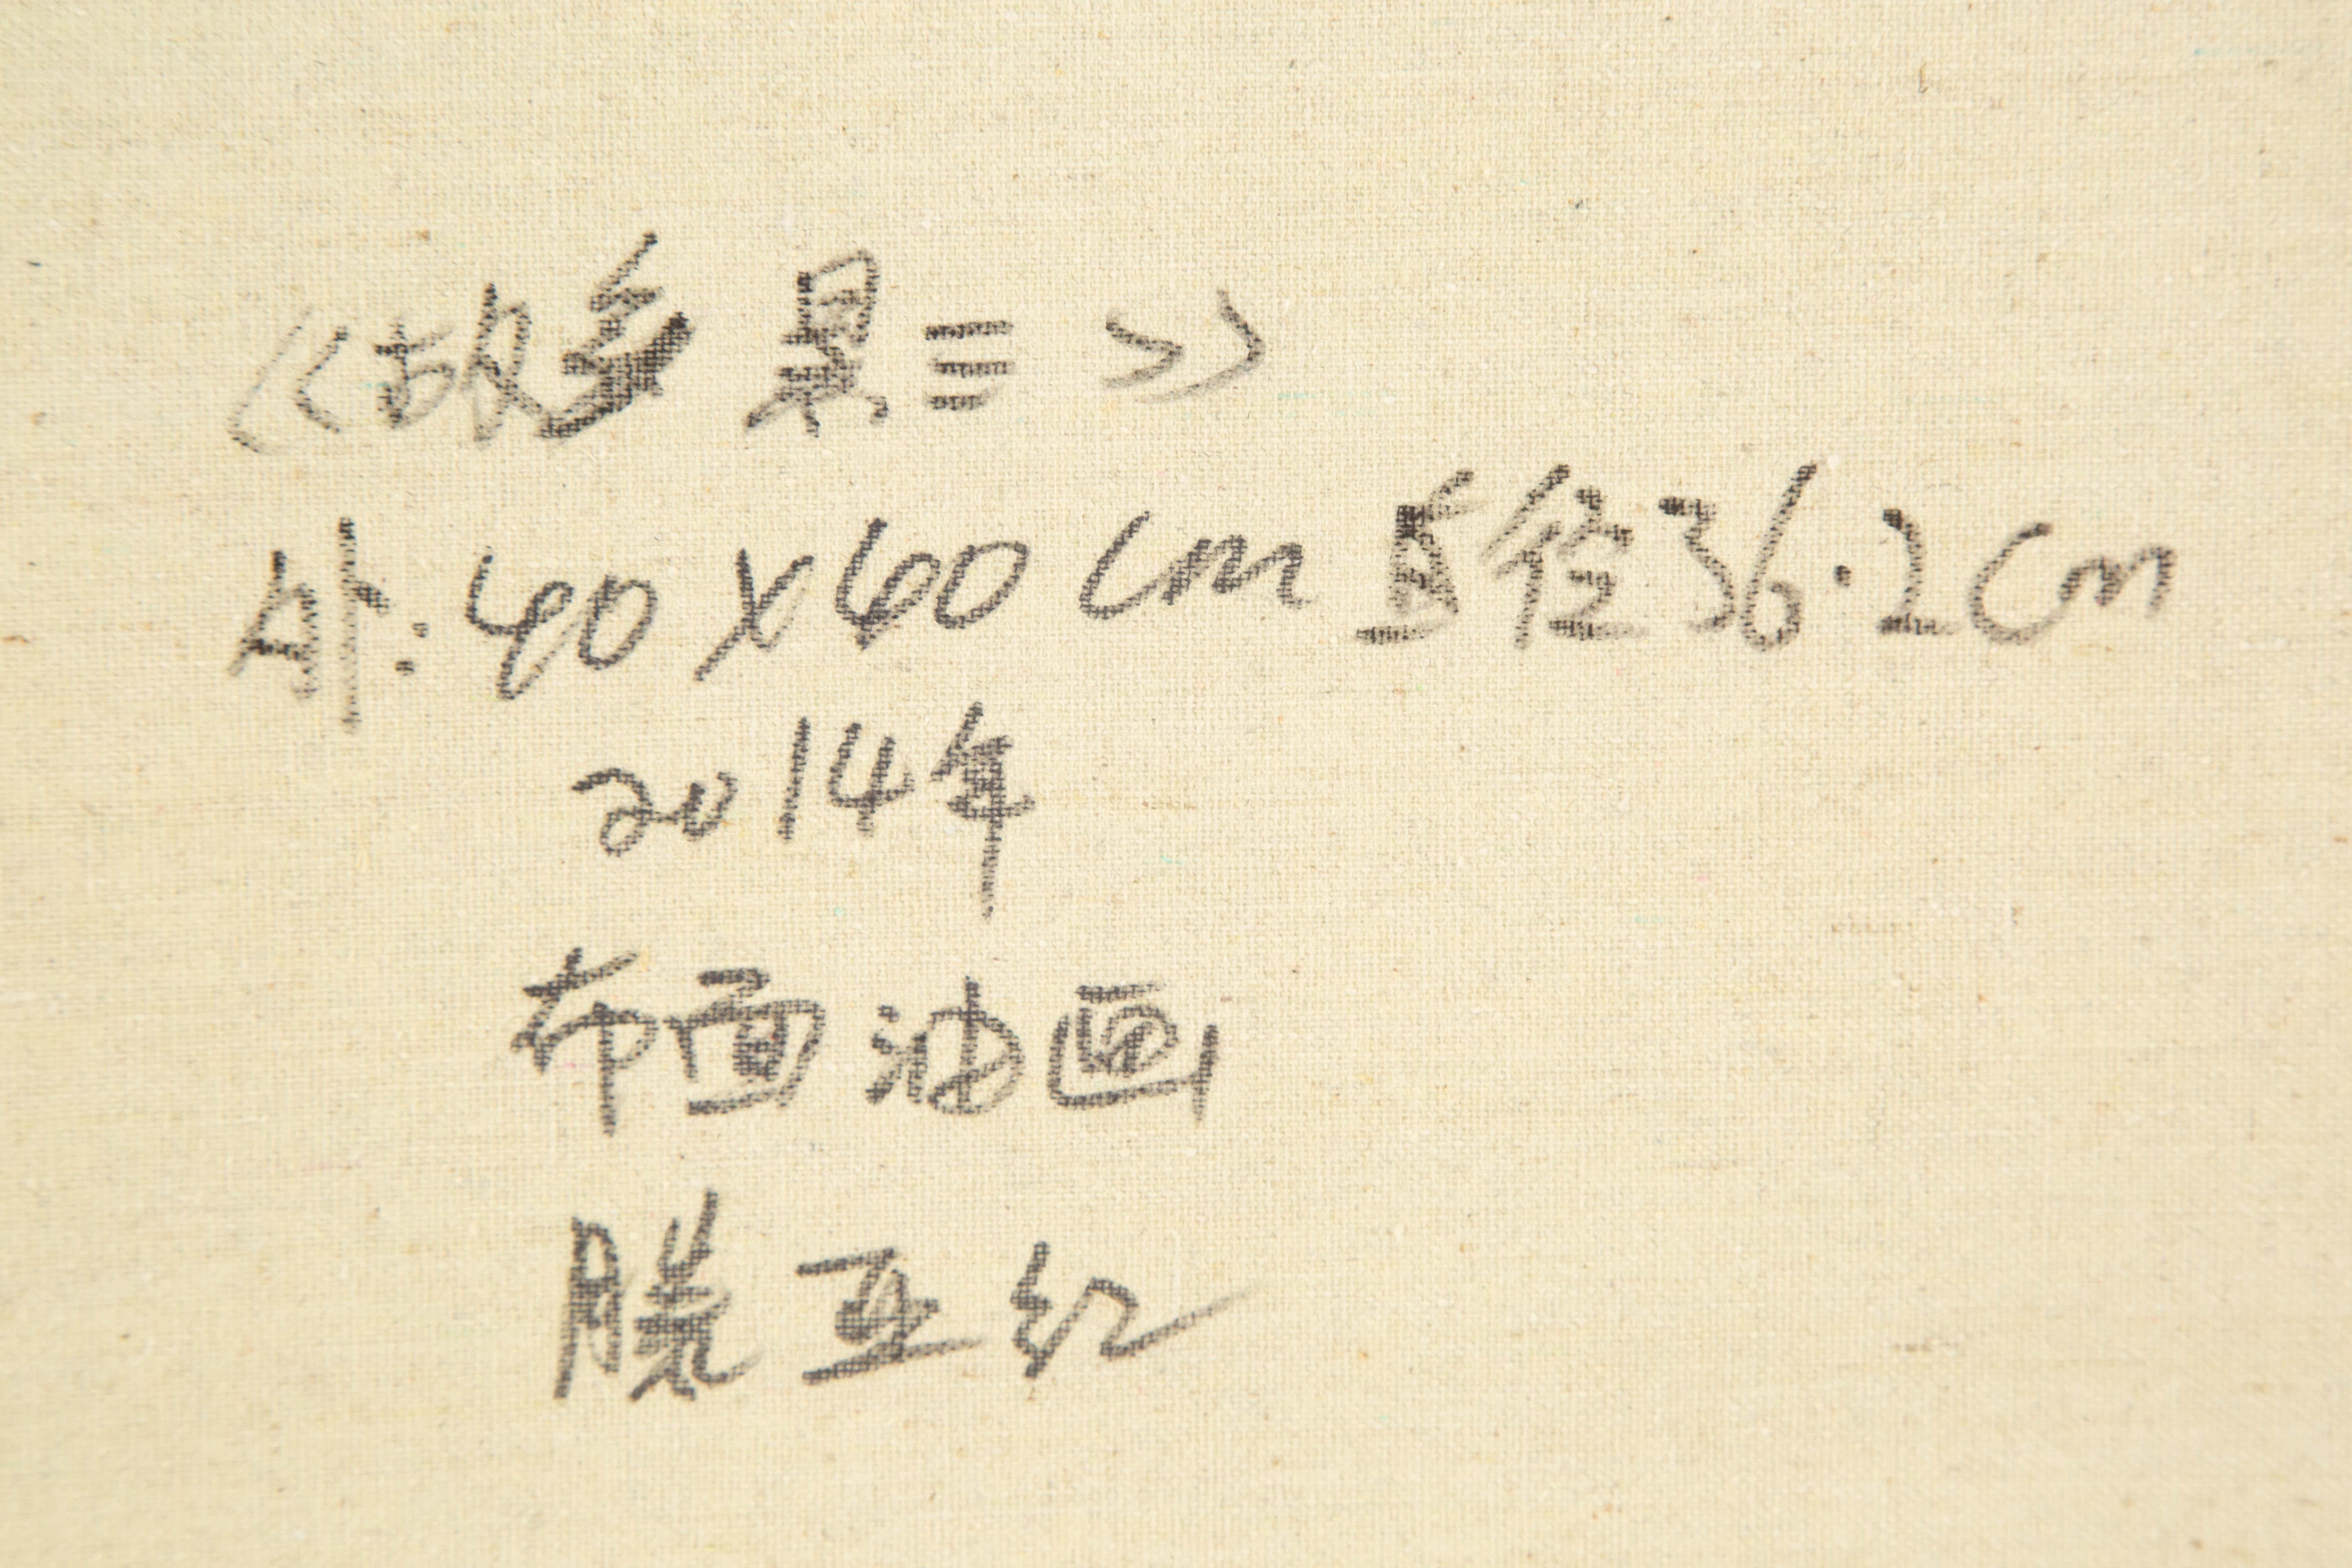 《故乡景三》
外:40x40cm 直径36.2cm
2014年
布面油画
滕亚红